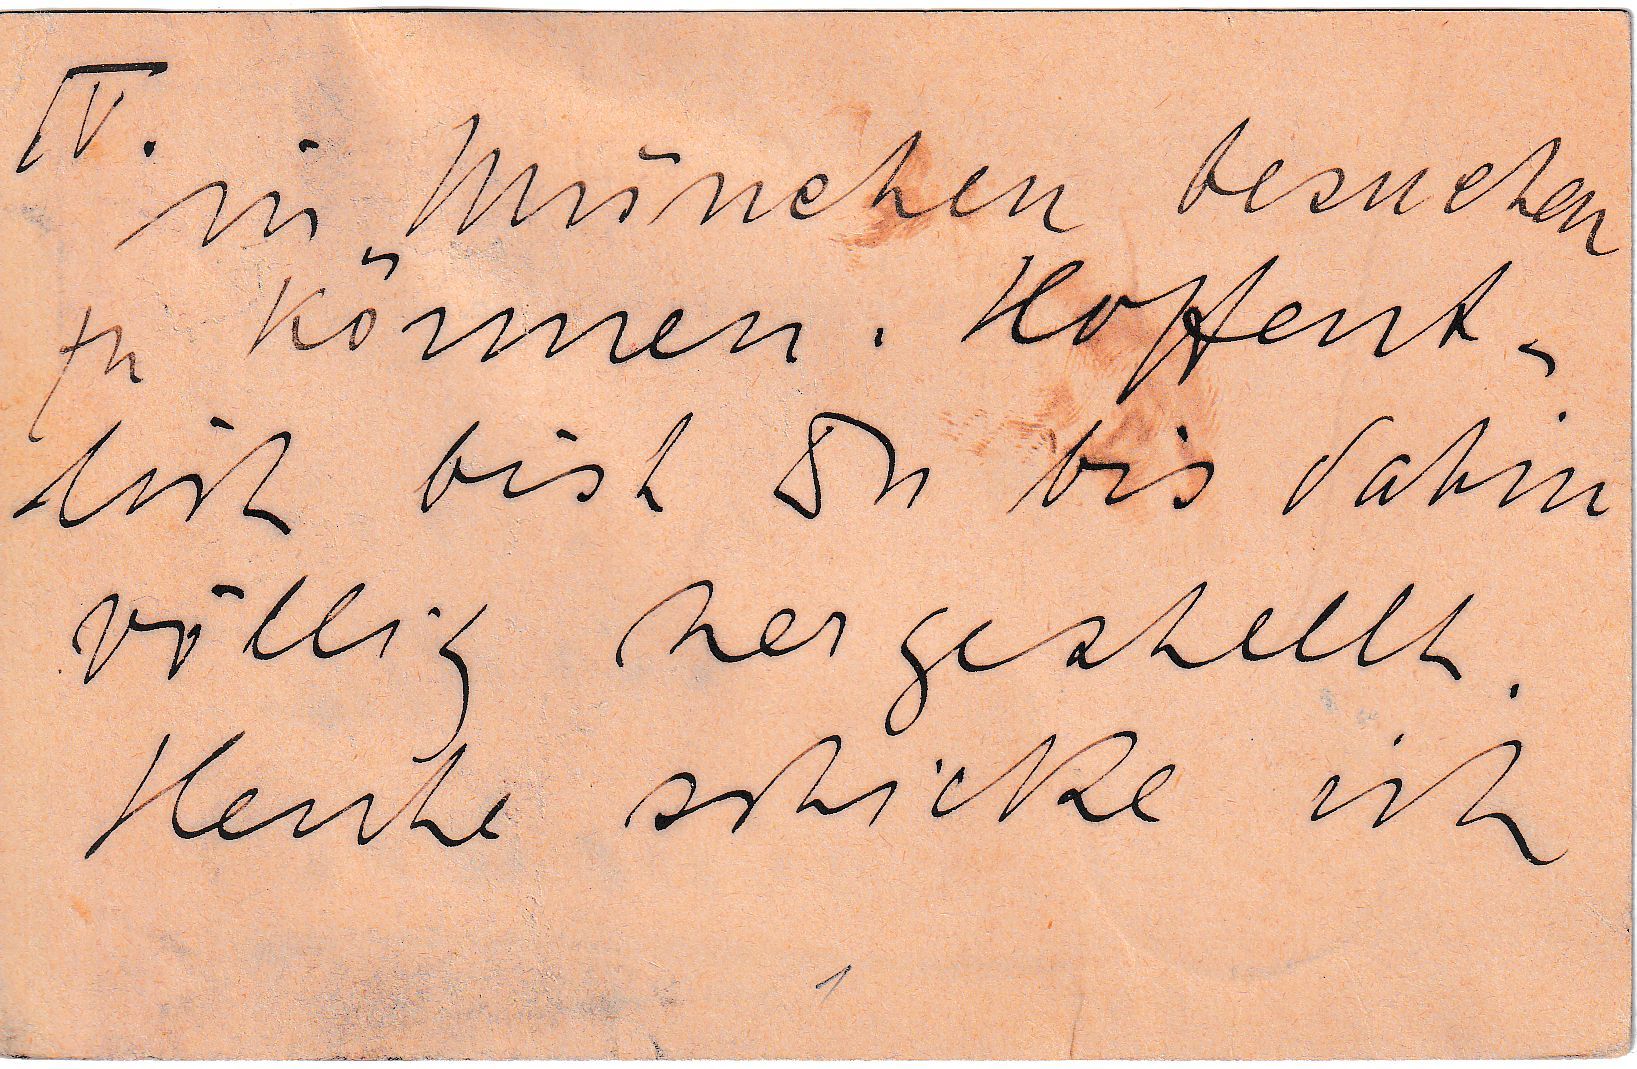 IV.
in München besuchen
zu können. Hoffent-
lich bist Du bis dahin
völlig hergestellt.
Heute schicke ich
1